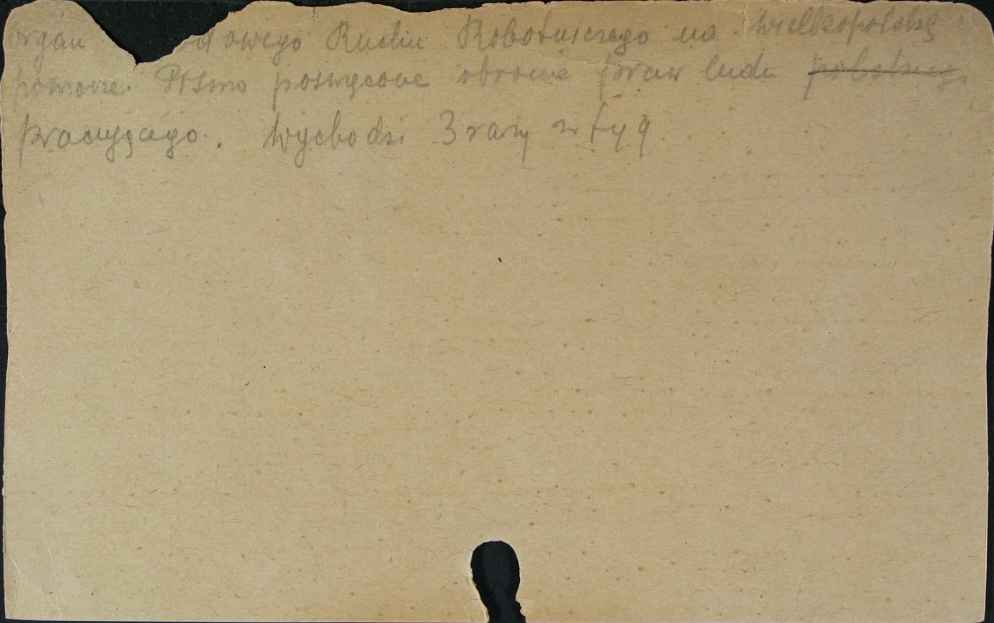 rgan owego Ruchu Robotniczego na Wielkopolskę
Pomorze. Pismo poswięcone obronie praw ludu
pracującego. Wychodzi 3 razy w tyg